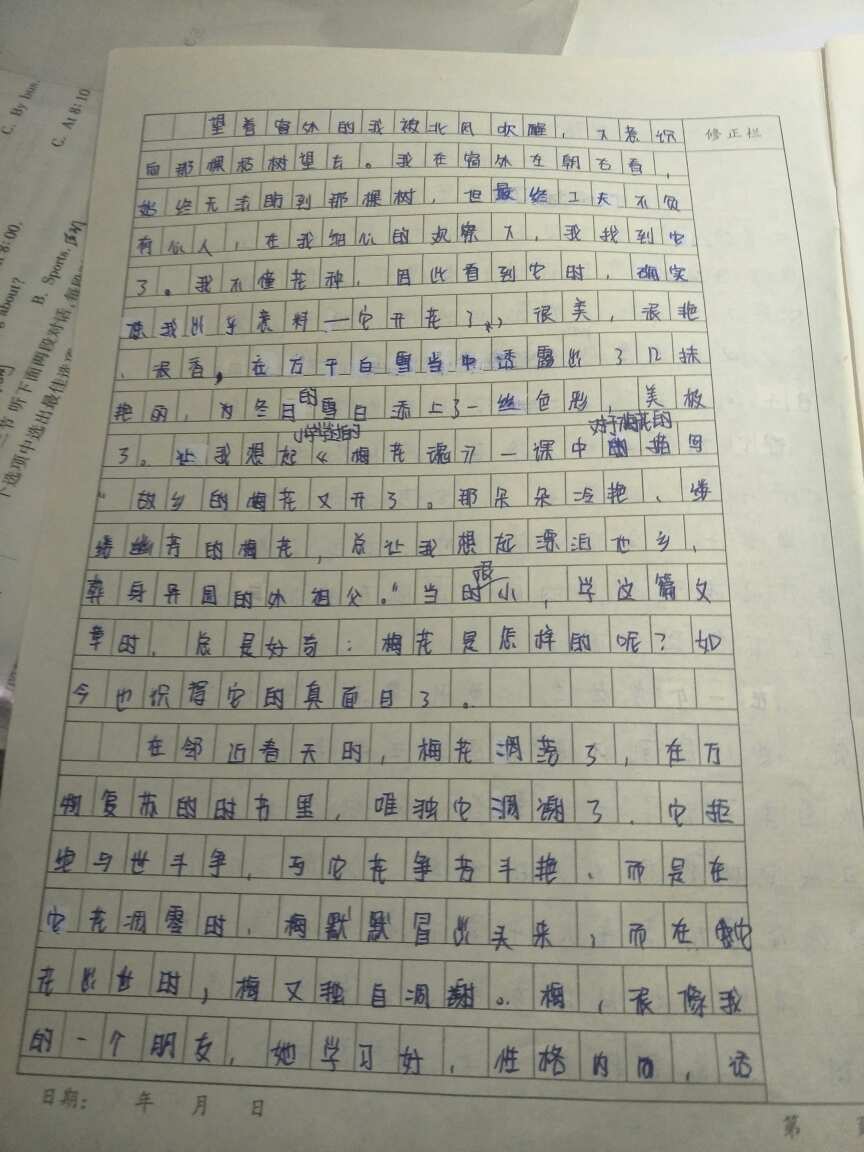 C. By bus.
C. At 8:10
8:00.
about?
B. Sports.
节 听下面两段对话,每段
选项中选出最佳选
修正栏
望着窗外的我被北风吹醒,下意识
向那棵梅树望去。我在窗外左朝右看,
始终无法盼到那棵树,但最终工夫不负
有心人,在我细心的观察下,我找到它
了。我不懂花种,因此看到它时,确实
令我出乎意料—它开花了,很美,很艳
、很香,在万千白雪当中透露出了几抹
艳丽,为冬日的雪白添上了一丝色彩,美极
了。让我想起小学时的《梅花魂》一课中对于梅花的描写
“故乡的梅花又开了。那朵朵冷艳、缕
缕幽芳的梅花,总让我想起漂泊他乡、
葬身异国的外祖父。”当时很小,学这篇文
章时,总是好奇:梅花是怎样的呢?如
今也识得它的真面目了。
在邻近春天时,梅花凋落了,在万
物复苏的时节里,唯独它凋谢了。它拒
绝与世斗争,与它花争芳斗艳、而是在
它花凋零时,梅默默冒出头来,而在它
花出世时,梅又独自凋谢。梅,很像我
的一个朋友,她学习好,性格内向,话
日期: 年 月 日
第